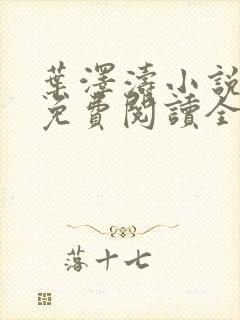 葉澤濤小說
免費閱讀全
落十七